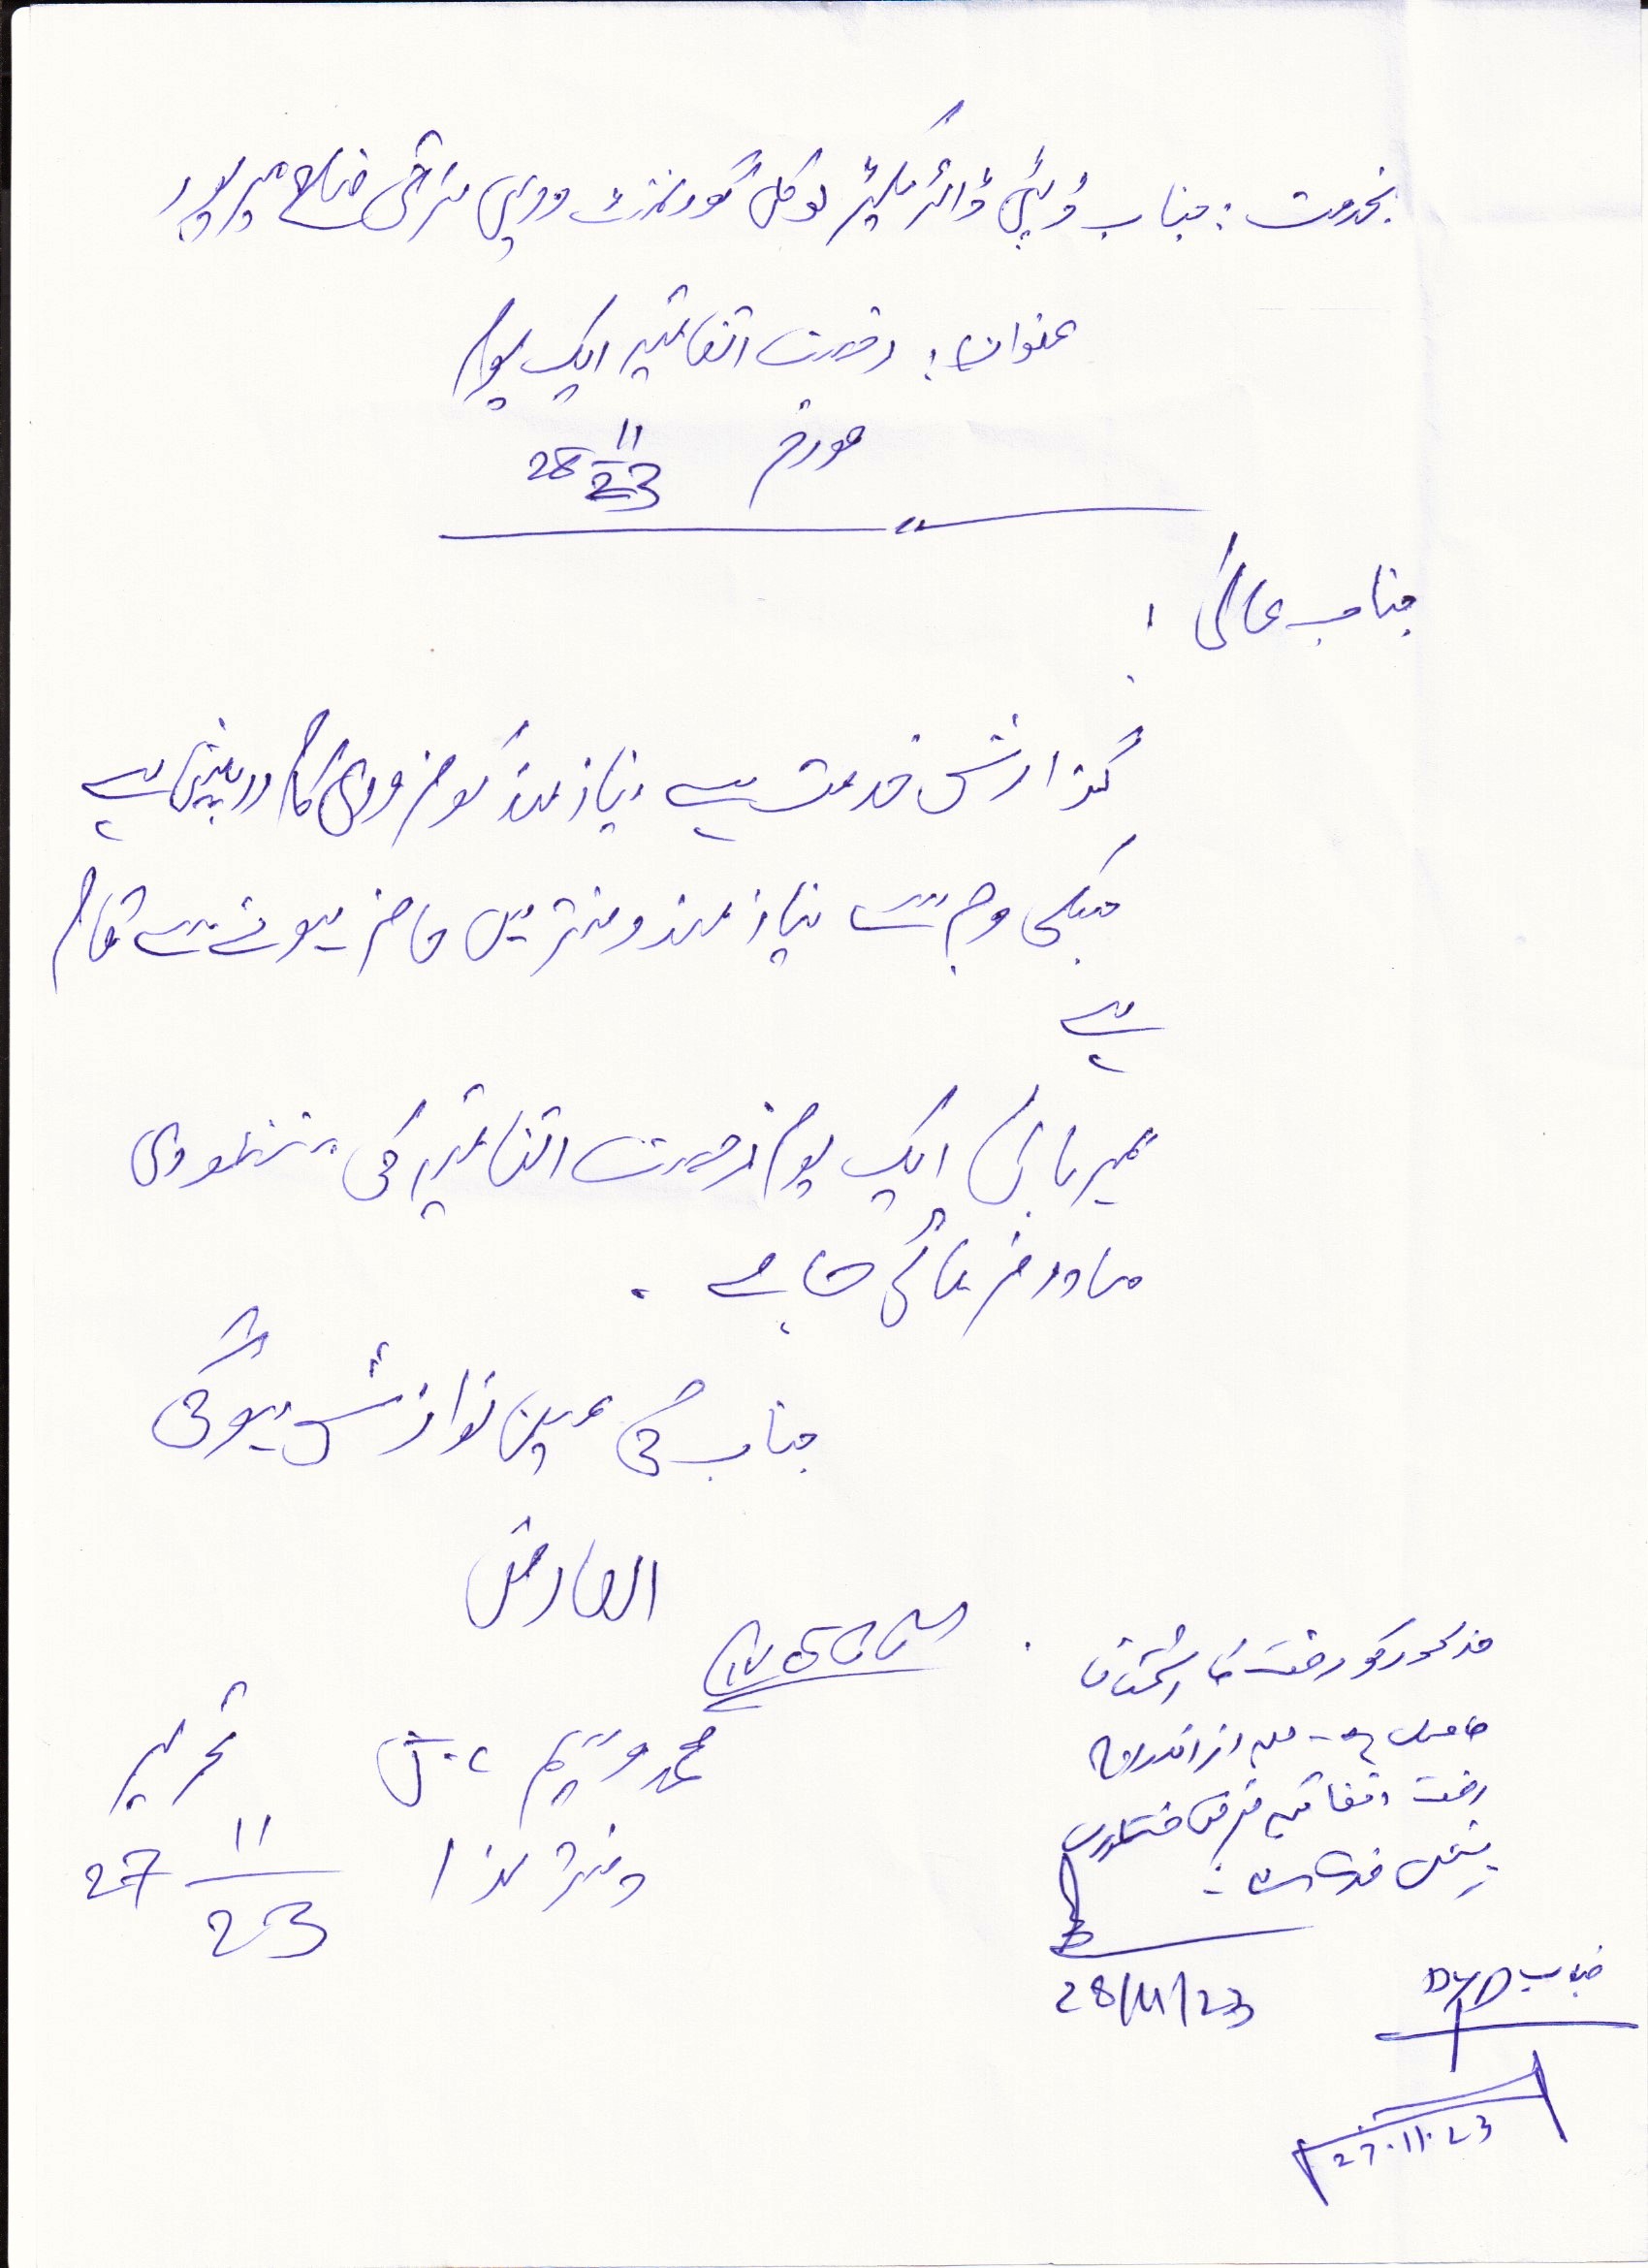 بخدمت: جناب ڈپٹی ڈائریکٹر لوکل گورنمنٹ و دیہی ترقی ضلع میرپور
عنوان: رخصت اتفاقیہ ایک یوم
مورخہ 28 11/23
جناب عالی!
گزارش خدمت ہے نیازمند کو ضروری کام درپیش ہے
جسکی وجہ سے نیازمند دفتر میں حاضر ہونے سے قاصر
ہے
مہربانی ایک یوم رخصت اتفاقیہ کی منظوری
صادر فرمائی جائے۔
جناب کی عین نوازش ہوگی
العارض
محمد وسیم
دفتر ہذا
تحریر
27 11/23
مذکور کو رخصت کا استحقاق
حاصل ہے
رخصت اتفاقیہ غرض منظوری
پیش خدمت ہے۔
28/11/23
جناب DyD
27.11.23